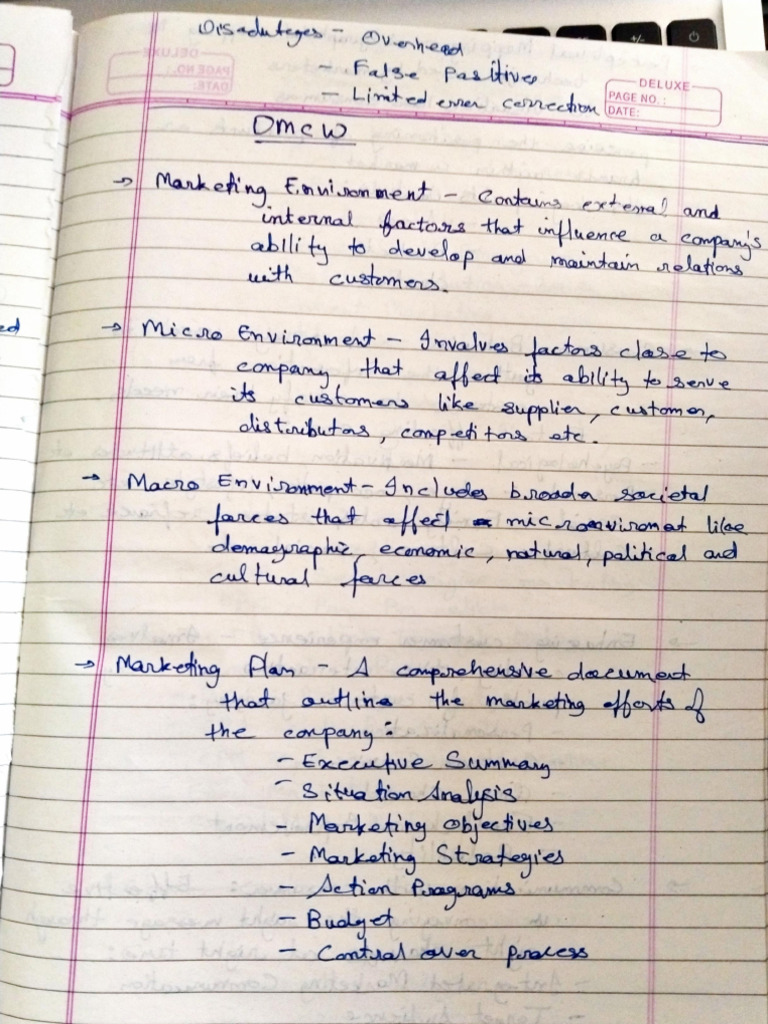 Disadvteges - Overhead
- False Positives
- Limited error correction
DELUXE
PAGE NO.:
DATE:
DMCW
→ Marketing Environment - Contains external and
internal factors that influence a company's
ability to develop and maintain relations
with customers.
→ Micro Environment - Involves factors close to
company that affect its ability to serve
its customers like supplier, customer,
distributors, competitors etc.
→ Macro Environment - Includes broader societal
forces that affect microenvironmet like
demographic, economic, natural, political and
cultural forces
→ Marketing Plan - A comprehensive document
that outline the marketing efforts of
the company:
- Executive Summary
- Situation Analysis
- Marketing Objectives
- Marketing Strategies
- Action Programs
- Budget
- Control over process